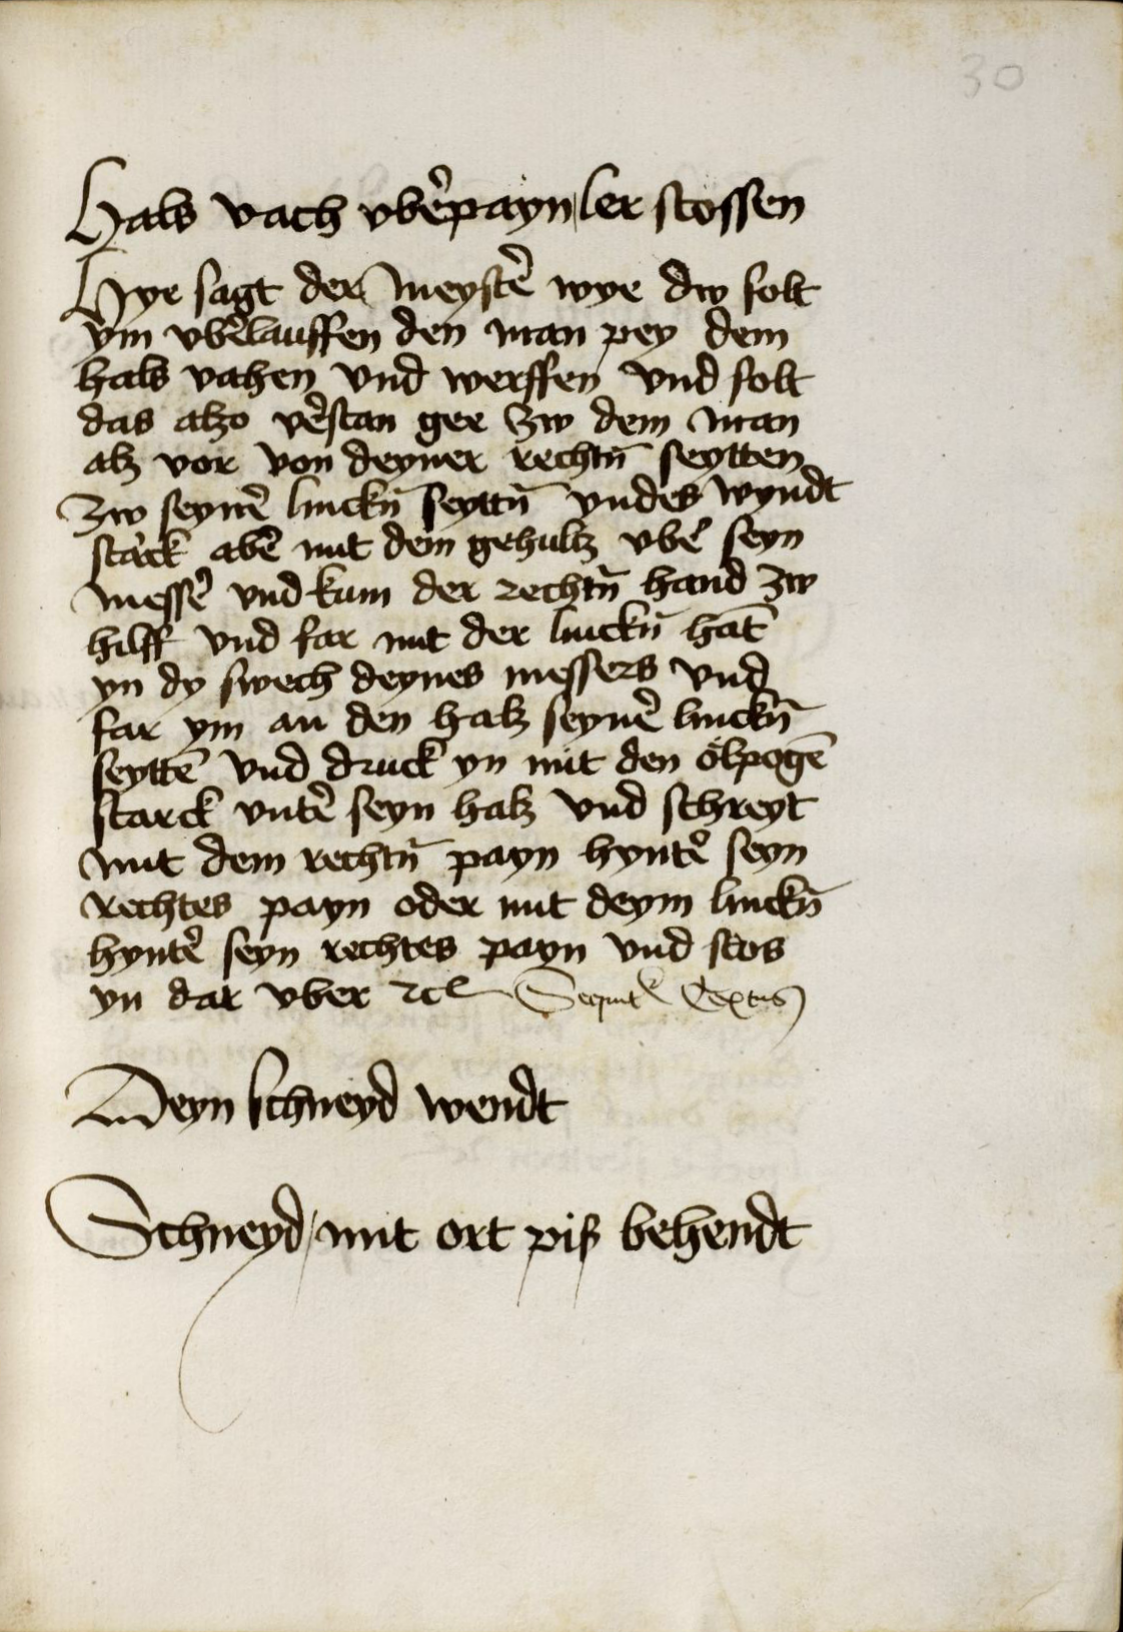 30
Hals vach vber̄payn|ler stossen
Hye sagt der Meyster̄ wye dw solt
ym vber̄lauffen den man pey dem
hals vahen vnd werffen vnd solt
das alzo ver̄stan gee zw dem man
alz vor von deyner rechtn̄ seytten
zw seyner̄ linckn̄ seyttn̄ vndes wyndt
starck aber̄ mit dem gehultz vber̄ seyn
messer̄ vnd kum der rechtn̄ hand zw
hilff vnd far mit der linckn̄ hāt
yn dy swech deynes messers vnd
far ym an den halz seyner̄ linckn̄
seyttē vnd druck yn mit den ölpogē
starck vnter̄ seyn halz vnd schreyt
mit dem rechtn̄ payn hynter̄ seyn
rechtes payn oder mit deym linckn̄
hynter̄ seyn rechtes payn vnd stos
yn dar vber ⁊cꝭ Sequit᷑ Textus
Deyn schneyd wendt
Schneyd / mit ort piß behendt